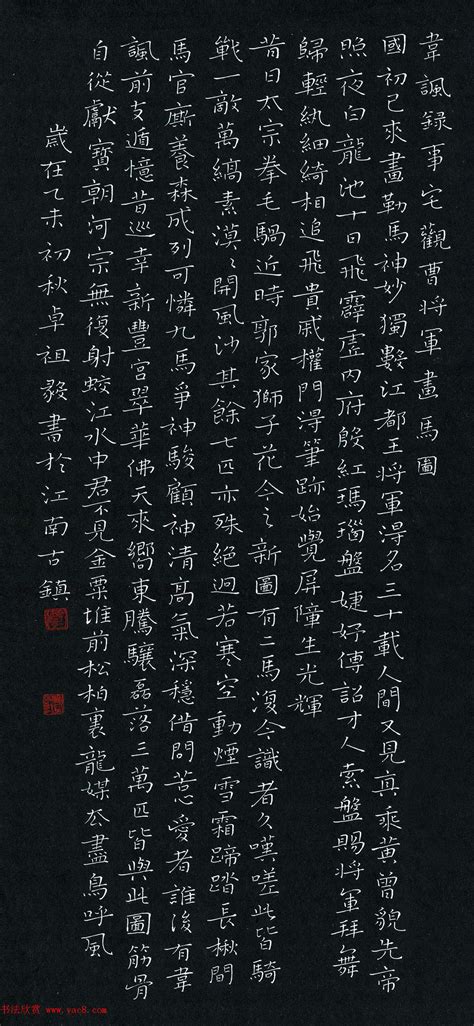 韋諷録事宅觀曹将軍畫馬圖
國初已來畫勒馬神妙獨數江都王將軍得名三十載人間又見真乘黃曾貌先帝
照夜白龍池十日飛霹靂內府殷紅瑪瑙盤婕妤傳詔才人索盤賜將軍拜舞
歸輕紈細綺相追飛貴戚權門得筆跡始覺屏障生光輝
昔日太宗拳毛騧近時郭家獅子花今之新圖有二馬復令識者久嘆嗟此皆騎
戰一敵萬縞素漠〻開風沙其餘七匹亦殊絕迥若寒空動煙雪霜蹄踏長楸間
馬官廝養森成列可憐九馬爭神駿顧神清高氣深穩借問苦心愛者誰後有韋
諷前支遁憶昔巡幸新豐宮翠華佛天來嚮東騰驤磊落三萬匹皆與此圖筋骨
自從獻寶朝河宗無復射蛟江水中君不見金粟堆前松柏裏龍媒去盡鳥呼風
歲在乙未初秋卓祖毅書於江南古鎮
书法欣赏 www.yac8.com